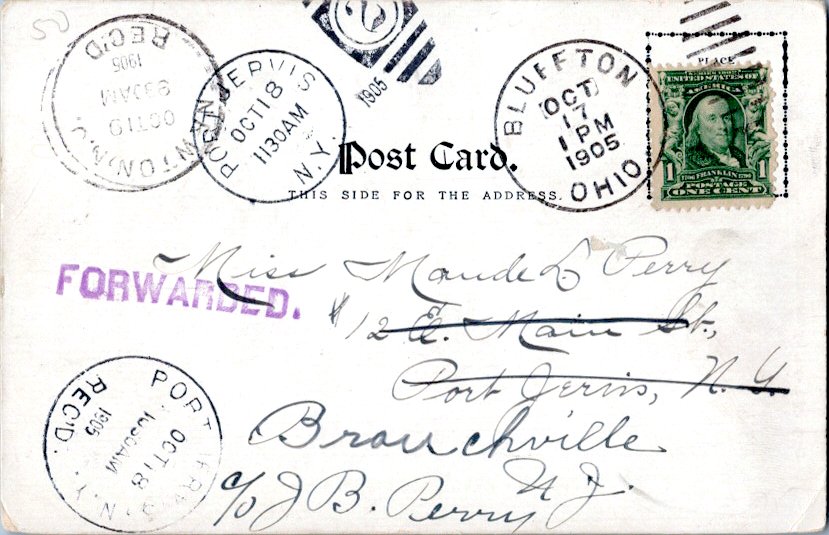 50
NEWTON, N.J.
OCT 19
930AM
1905
REC'D
PORT JERVIS
OCT 18
1130AM
N.Y.
1905
BLUFFTON
OCT
17
1 PM
1905
OHIO
PLACE
UNITED STATES OF
AMERICA
1 FRANKLIN 1
POSTAGE
ONE CENT
Post Card.
THIS SIDE FOR THE ADDRESS.
Miss Maude L. Perry
FORWARDED.
#12 E. Main St.,
Port Jervis, N.Y.
Branchville
N.J.
c/o J B. Perry
PORT JERVIS
OCT 18
1030AM
1905
N.Y.
REC'D.